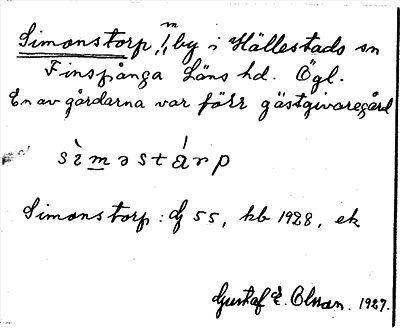 Simonstorp, 1/1 m by i Hällestads sn
Finspånga Läns hd. Ögl.
En av gårdarna var förr gästgivaregård
sìməstárp
Simonstorp: dj 55, kb 1928, ek
Gustaf E. Olsson. 1927.